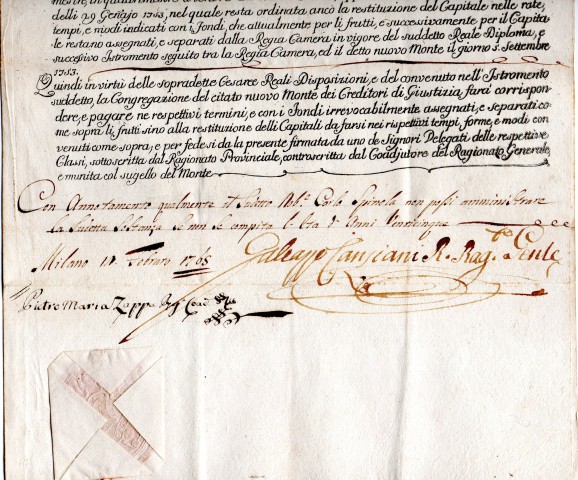 delli 29 Genajo 1763, nel quale resta ordinata anco la restituzione del Capitale nelle rate,
tempi, e modi indicati con i Fondi, che attualmente per li frutti, e successivamente per il Capita
le restano assegnati, e separati dalla Regia Camera in vigore del suddetto Reale Diploma, e
successivo Istromento seguito tra la Regia Camera, ed il detto nuovo Monte il giorno 5. Settembre
1753.
Quindi in virtù delle sopradette Cesaree Reali Disposizioni, e del convenuto nell'Istromento
suddetto, la Congregazione del citato nuovo Monte dei Creditori di Giustizia, farà corrispon
dere, e pagare ne respettivi termini, e con i Fondi irrevocabilmente assegnati, e separati co
me sopra li frutti sino alla restituzione delli Capitali da farsi nei rispettivi tempi, forme, e modi con
venuti come sopra, e per fede si da la presente firmata da uno de Signori Delegati delle respettive
Classi, sottoscritta dal Ragionato Provinciale, controscritta dal Coadjutore del Ragionato Generale,
e munita col sugello del Monte
Con Annotamento qualmente il Sudetto Nob. Carlo Spinola non possi amministrare
la Sudetta Sostanza se non se compita l'Età d'Anni Venticinque
Milano 11 Febraro 1765
Galeazzo Canziani R. Rag.to Gnle
Pietro Maria Zappa